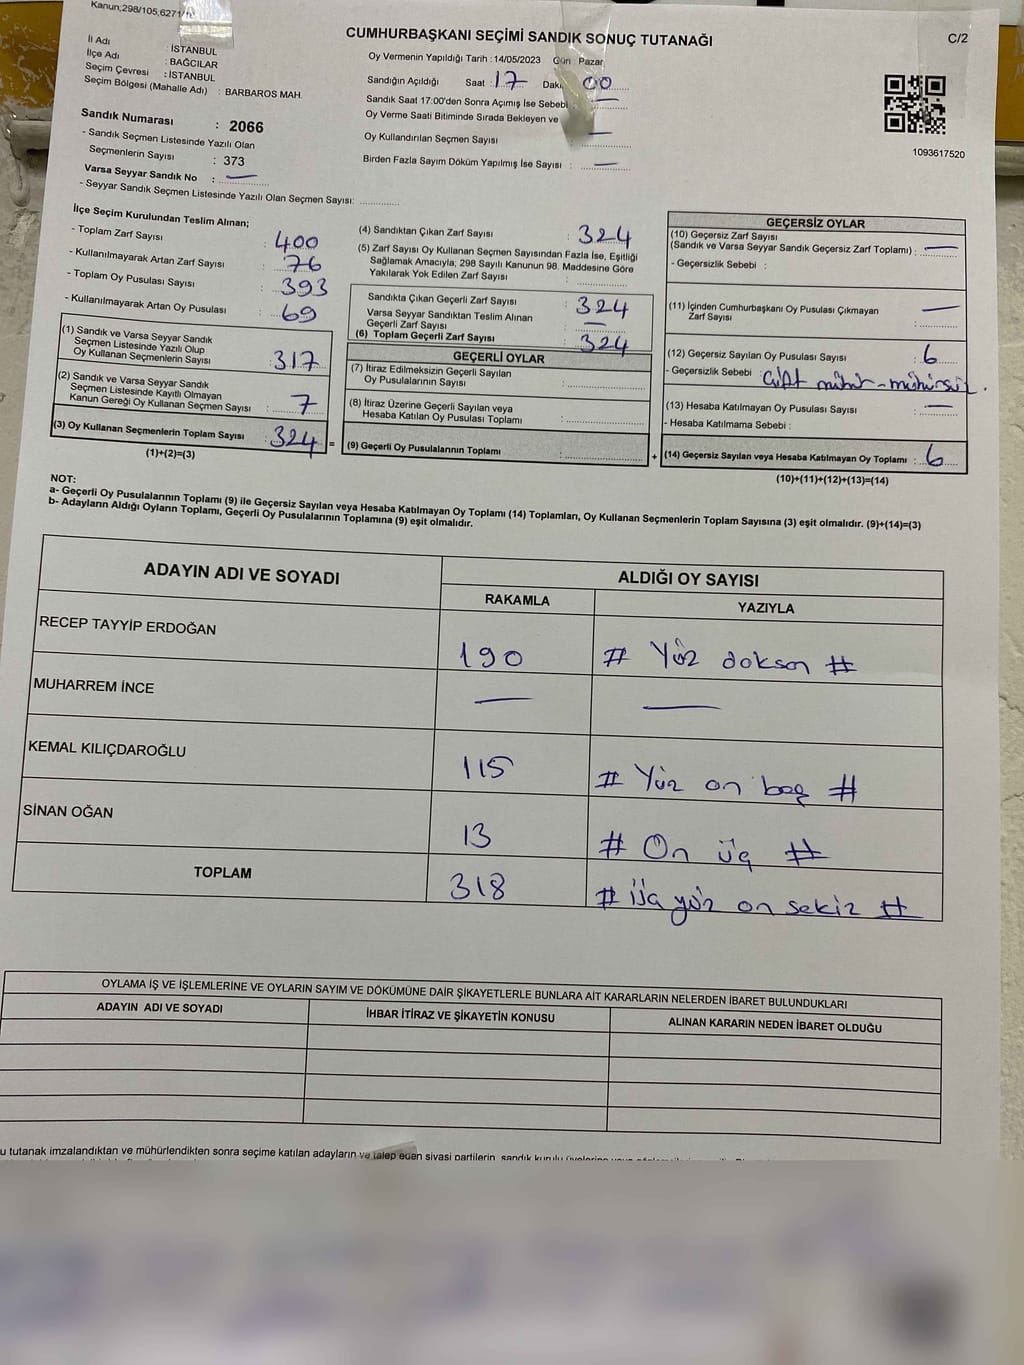 Kanun;298/105,6271/
CUMHURBAŞKANI SEÇİMİ SANDIK SONUÇ TUTANAĞI
C/2
İli Adı : İSTANBUL
İlçe Adı : BAĞCILAR
Seçim Çevresi : İSTANBUL
Seçim Bölgesi (Mahalle Adı) : BARBAROS MAH.
Oy Vermenin Yapıldığı Tarih : 14/05/2023 Gün Pazar
Sandığın Açıldığı Saat : 17 Daki 00
Sandık Saat 17:00'den Sonra Açımış İse Sebebi —
Oy Verme Saati Bitiminde Sırada Bekleyen ve
Oy Kullandırılan Seçmen Sayısı —
Birden Fazla Sayım Döküm Yapılmış İse Sayısı : —
1093617520
Sandık Numarası : 2066
- Sandık Seçmen Listesinde Yazılı Olan
Seçmenlerin Sayısı : 373
Varsa Seyyar Sandık No : —
- Seyyar Sandık Seçmen Listesinde Yazılı Olan Seçmen Sayısı:
İlçe Seçim Kurulundan Teslim Alınan;
- Toplam Zarf Sayısı : 400
- Kullanılmayarak Artan Zarf Sayısı : 76
- Toplam Oy Pusulası Sayısı : 393
- Kullanılmayarak Artan Oy Pusulası : 69
(1) Sandık ve Varsa Seyyar Sandık
Seçmen Listesinde Yazılı Olup
Oy Kullanan Seçmenlerin Sayısı : 317
(2) Sandık ve Varsa Seyyar Sandık
Seçmen Listesinde Kayıtlı Olmayan
Kanun Gereği Oy Kullanan Seçmen Sayısı : 7
(3) Oy Kullanan Seçmenlerin Toplam Sayısı : 324 =
(1)+(2)=(3)
(4) Sandıktan Çıkan Zarf Sayısı : 324
(5) Zarf Sayısı Oy Kullanan Seçmen Sayısından Fazla İse, Eşitliği
Sağlamak Amacıyla; 298 Sayılı Kanunun 98. Maddesine Göre
Yakılarak Yok Edilen Zarf Sayısı :
Sandıkta Çıkan Geçerli Zarf Sayısı : 324
Varsa Seyyar Sandıktan Teslim Alınan
Geçerli Zarf Sayısı : —
(6) Toplam Geçerli Zarf Sayısı : 324
GEÇERLİ OYLAR
(7) İtiraz Edilmeksizin Geçerli Sayılan
Oy Pusulalarının Sayısı :
(8) İtiraz Üzerine Geçerli Sayılan veya
Hesaba Katılan Oy Pusulası Toplamı :
(9) Geçerli Oy Pusulalarının Toplamı : +
GEÇERSİZ OYLAR
(10) Geçersiz Zarf Sayısı
(Sandık ve Varsa Seyyar Sandık Geçersiz Zarf Toplamı) : —
- Geçersizlik Sebebi :
(11) İçinden Cumhurbaşkanı Oy Pusulası Çıkmayan —
Zarf Sayısı :
(12) Geçersiz Sayılan Oy Pusulası Sayısı : 6
- Geçersizlik Sebebi : Çift mühür - mühürsüz.
(13) Hesaba Katılmayan Oy Pusulası Sayısı : —
- Hesaba Katılmama Sebebi :
(14) Geçersiz Sayılan veya Hesaba Katılmayan Oy Toplamı : 6
(10)+(11)+(12)+(13)=(14)
NOT:
a- Geçerli Oy Pusulalarının Toplamı (9) ile Geçersiz Sayılan veya Hesaba Katılmayan Oy Toplamı (14) Toplamları, Oy Kullanan Seçmenlerin Toplam Sayısına (3) eşit olmalıdır. (9)+(14)=(3)
b- Adayların Aldığı Oyların Toplamı, Geçerli Oy Pusulalarının Toplamına (9) eşit olmalıdır.
ADAYIN ADI VE SOYADI
ALDIĞI OY SAYISI
RAKAMLA
YAZIYLA
RECEP TAYYİP ERDOĞAN 190 # Yüz doksan #
MUHARREM İNCE — —
KEMAL KILIÇDAROĞLU 115 # Yüz on beş #
SİNAN OĞAN 13 # On üç #
TOPLAM 318 # üç yüz on sekiz #
OYLAMA İŞ VE İŞLEMLERİNE VE OYLARIN SAYIM VE DÖKÜMÜNE DAİR ŞİKAYETLERLE BUNLARA AİT KARARLARIN NELERDEN İBARET BULUNDUKLARI
ADAYIN ADI VE SOYADI
İHBAR İTİRAZ VE ŞİKAYETİN KONUSU
ALINAN KARARIN NEDEN İBARET OLDUĞU
u tutanak imzalandıktan ve mühürlendikten sonra seçime katılan adayların ve talep eden siyasi partilerin, sandık kurulu